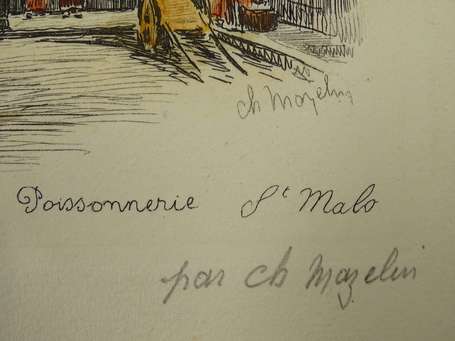 ch Mazelin
Poissonnerie St Malo
par ch Mazelin